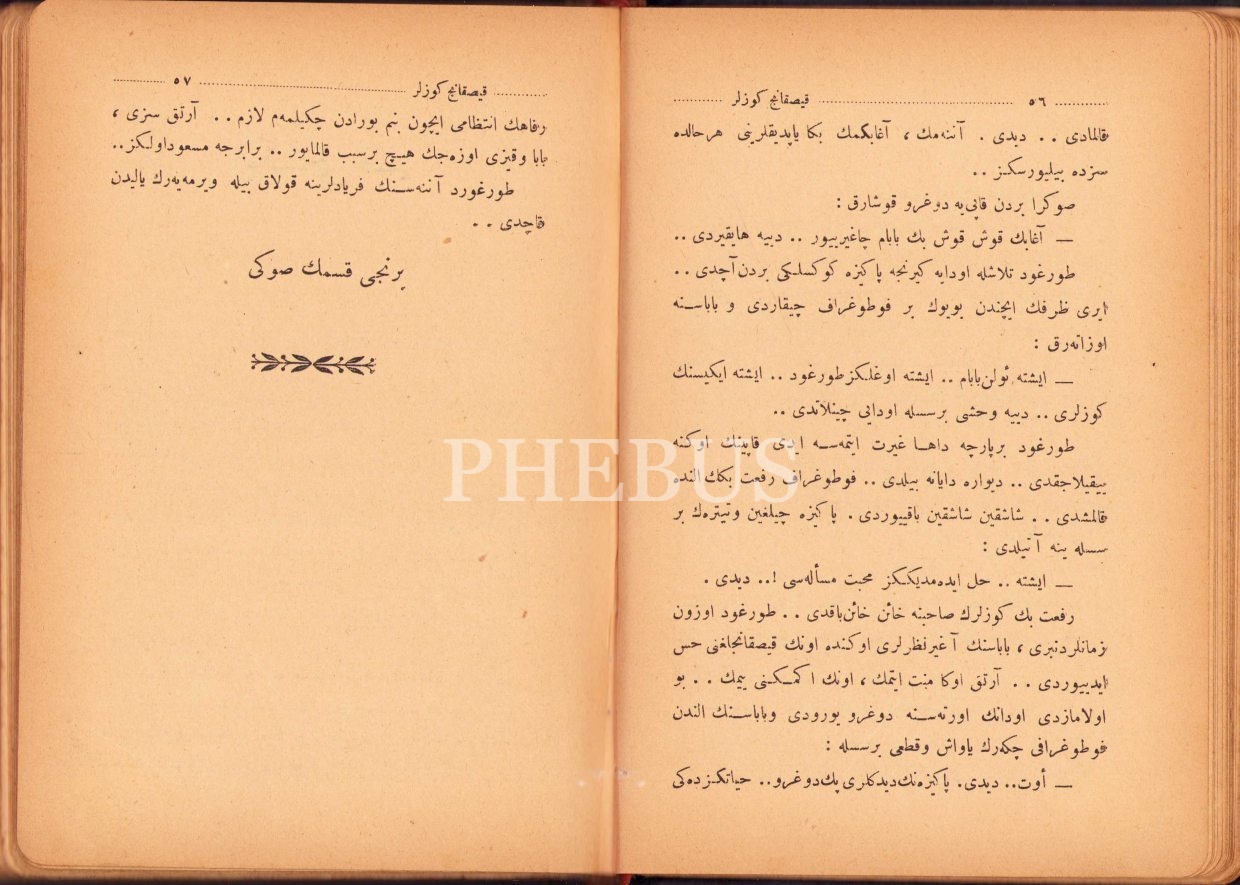 ٥٦ قيصقانج كوزلر
قالمادى .. ديدى . آننه‌مك ، آغابكمك بكا ياپديقلرينى هرحالده
سزده بيليورسكز ..
صوكرا بردن قاپى‌يه دوغرو قوشارق :
— آغابك قوش قوش بك بابام چاغيرييور .. دييه هايقيردى ..
طورغود تلاشله اودايه كيرنجه پاكيزه كوكسلكى بردن آچدى ..
ايرى ظرفك ايچندن بويوك بر فوطوغراف چيقاردى و باباسنه
اوزاته‌رق :
— ايشته ئولن بابام .. ايشته اوغلكز طورغود .. ايشته ايكيسنك
كوزلرى .. دييه وحشى برسسله اودايى چينلاتدى ..
طورغود برپارچه داها غيرت ايتمه‌سه ايدى قاپينك اوكنه
ييقيلاجقدى .. ديواره دايانه بيلدى .. فوطوغراف رفعت بكك النده
قالمشدى .. شاشقين شاشقين باقييوردى . پاكيزه چيلغين وتيتره‌ك بر
سسله ينه آتيلدى :
— ايشته .. حل ايده‌مديككز محبت مسأله‌سى !.. ديدى .
رفعت بك كوزلرك صاحبنه خائن خائن باقدى .. طورغود اوزون
زمانلردنبرى ، باباسنك آغير نظرلرى اوكنده اونك قيصقانجلغنى حس
ايدييوردى .. آرتق اوكا منت ايتمك ، اونك اكمكنى ييمك .. بو
اولامازدى اودانك اورته‌سنه دوغرو يورودى وباباسنك الندن
فوطوغرافى چكه‌رك ياواش وقطعى برسسله :
— أوت .. ديدى. پاكيزه‌نك ديدكلرى پك دوغرو .. حياتكزده‌كى
قيصقانج كوزلر ٥٧
رفاهك انتظامى ايچون بنم بورادن چكيلمه‌م لازم .. آرتق سزى ،
بابا وقيزى اوزه‌جك هيچ برسبب قالمايور .. برابرجه مسعود اولكز ..
طورغورد آننه‌سنك فريادلرينه قولاق بيله ويرمه‌يه‌رك ياليدن
قاچدى ..
برنجى قسمك صوكى
PHEBUS